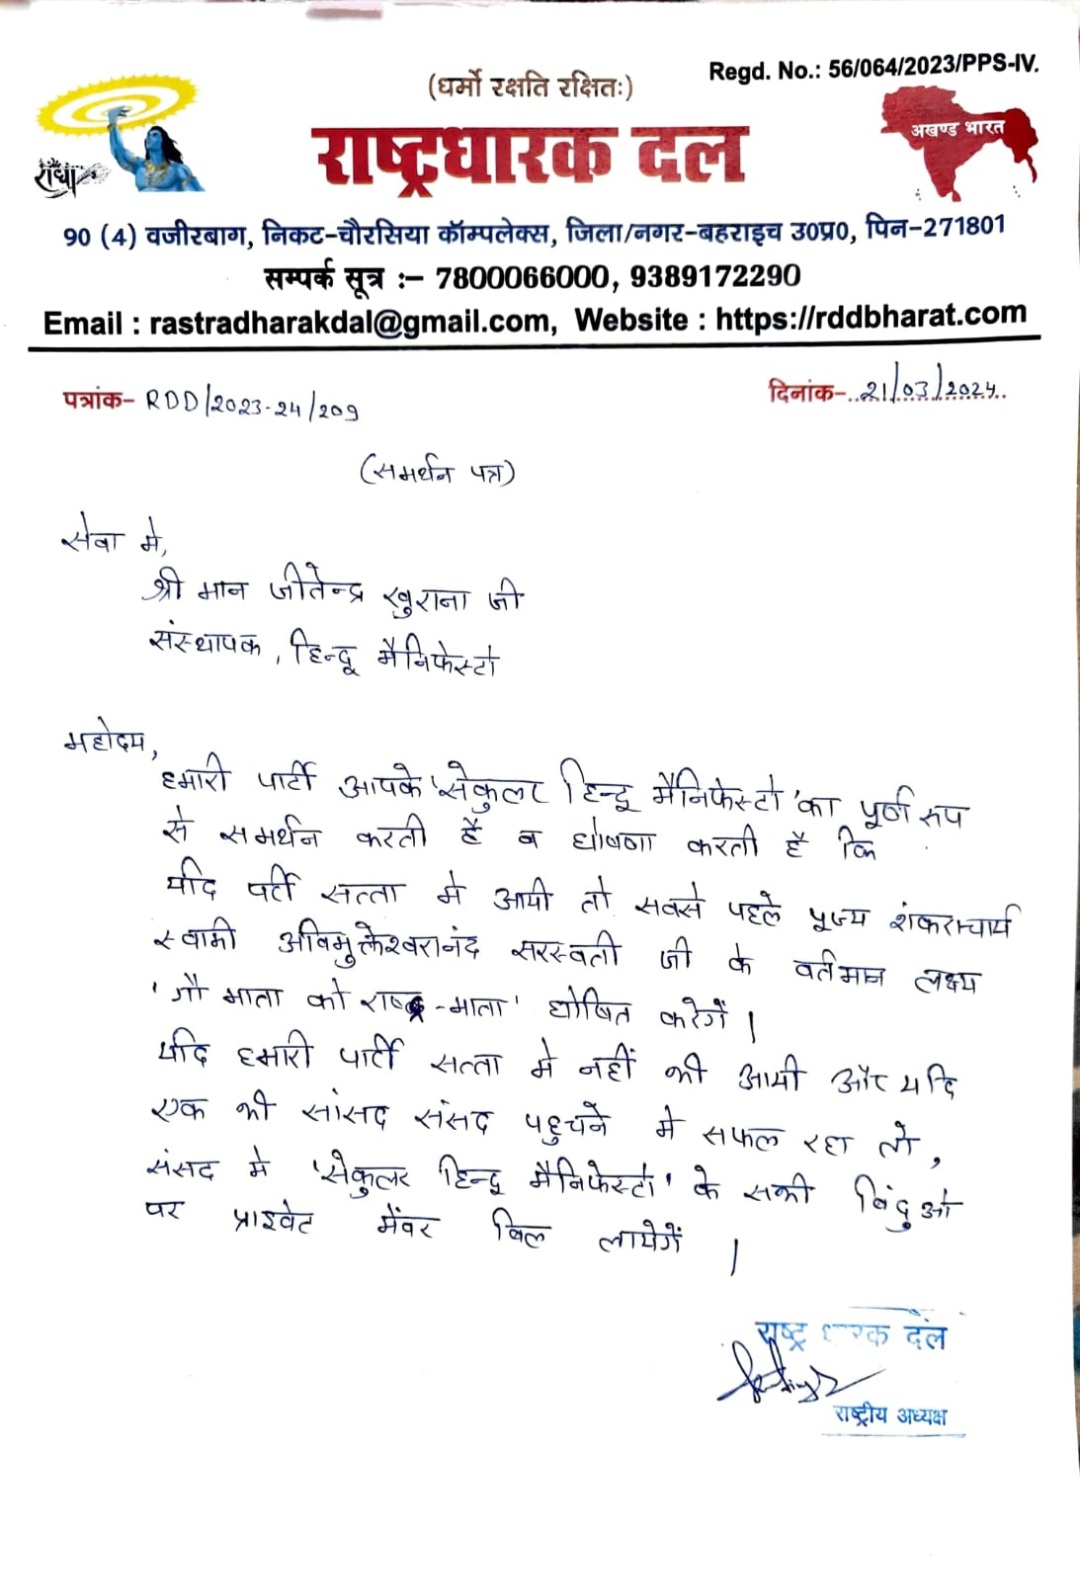 Regd. No.: 56/064/2023/PPS-IV.
(धर्मो रक्षति रक्षितः)
अखण्ड भारत
राष्ट्रधारक दल
90 (4) वजीरबाग, निकट-चौरसिया कॉम्पलेक्स, जिला/नगर-बहराइच उ०प्र०, पिन-271801
सम्पर्क सूत्र :- 7800066000, 9389172290
Email : rastradharakdal@gmail.com, Website : https://rddbharat.com
पत्रांक- RDD/2023-24/209
दिनांक-..21/03/2024..
(समर्थन पत्र)
सेवा मे,
श्री मान जीतेन्द्र खुराना जी
संस्थापक, हिन्दू मैनिफेस्टो
महोदय,
हमारी पार्टी आपके 'सेकुलर हिन्दू मैनिफेस्टो' का पूर्ण रुप
से समर्थन करती है व घोषणा करती है कि
यदि पर्टी सत्ता मे आयी तो सबसे पहले पूज्य शंकराचार्य
स्वामी अविमुक्तेश्वरानंद सरस्वती जी के वर्तमान लक्ष्य
'गौ माता को राष्ट्र-माता' घोषित करेगें |
यदि हमारी पार्टी सत्ता मे नहीं भी आयी और यदि
एक भी सांसद संसद पहुचने मे सफल रहा तो,
संसद मे 'सेकुलर हिन्दू मैनिफेस्टो' के सभी बिंदुओ
पर प्राइवेट मेंबर बिल लायेगें |
राष्ट्र धारक दल
राष्ट्रीय अध्यक्ष